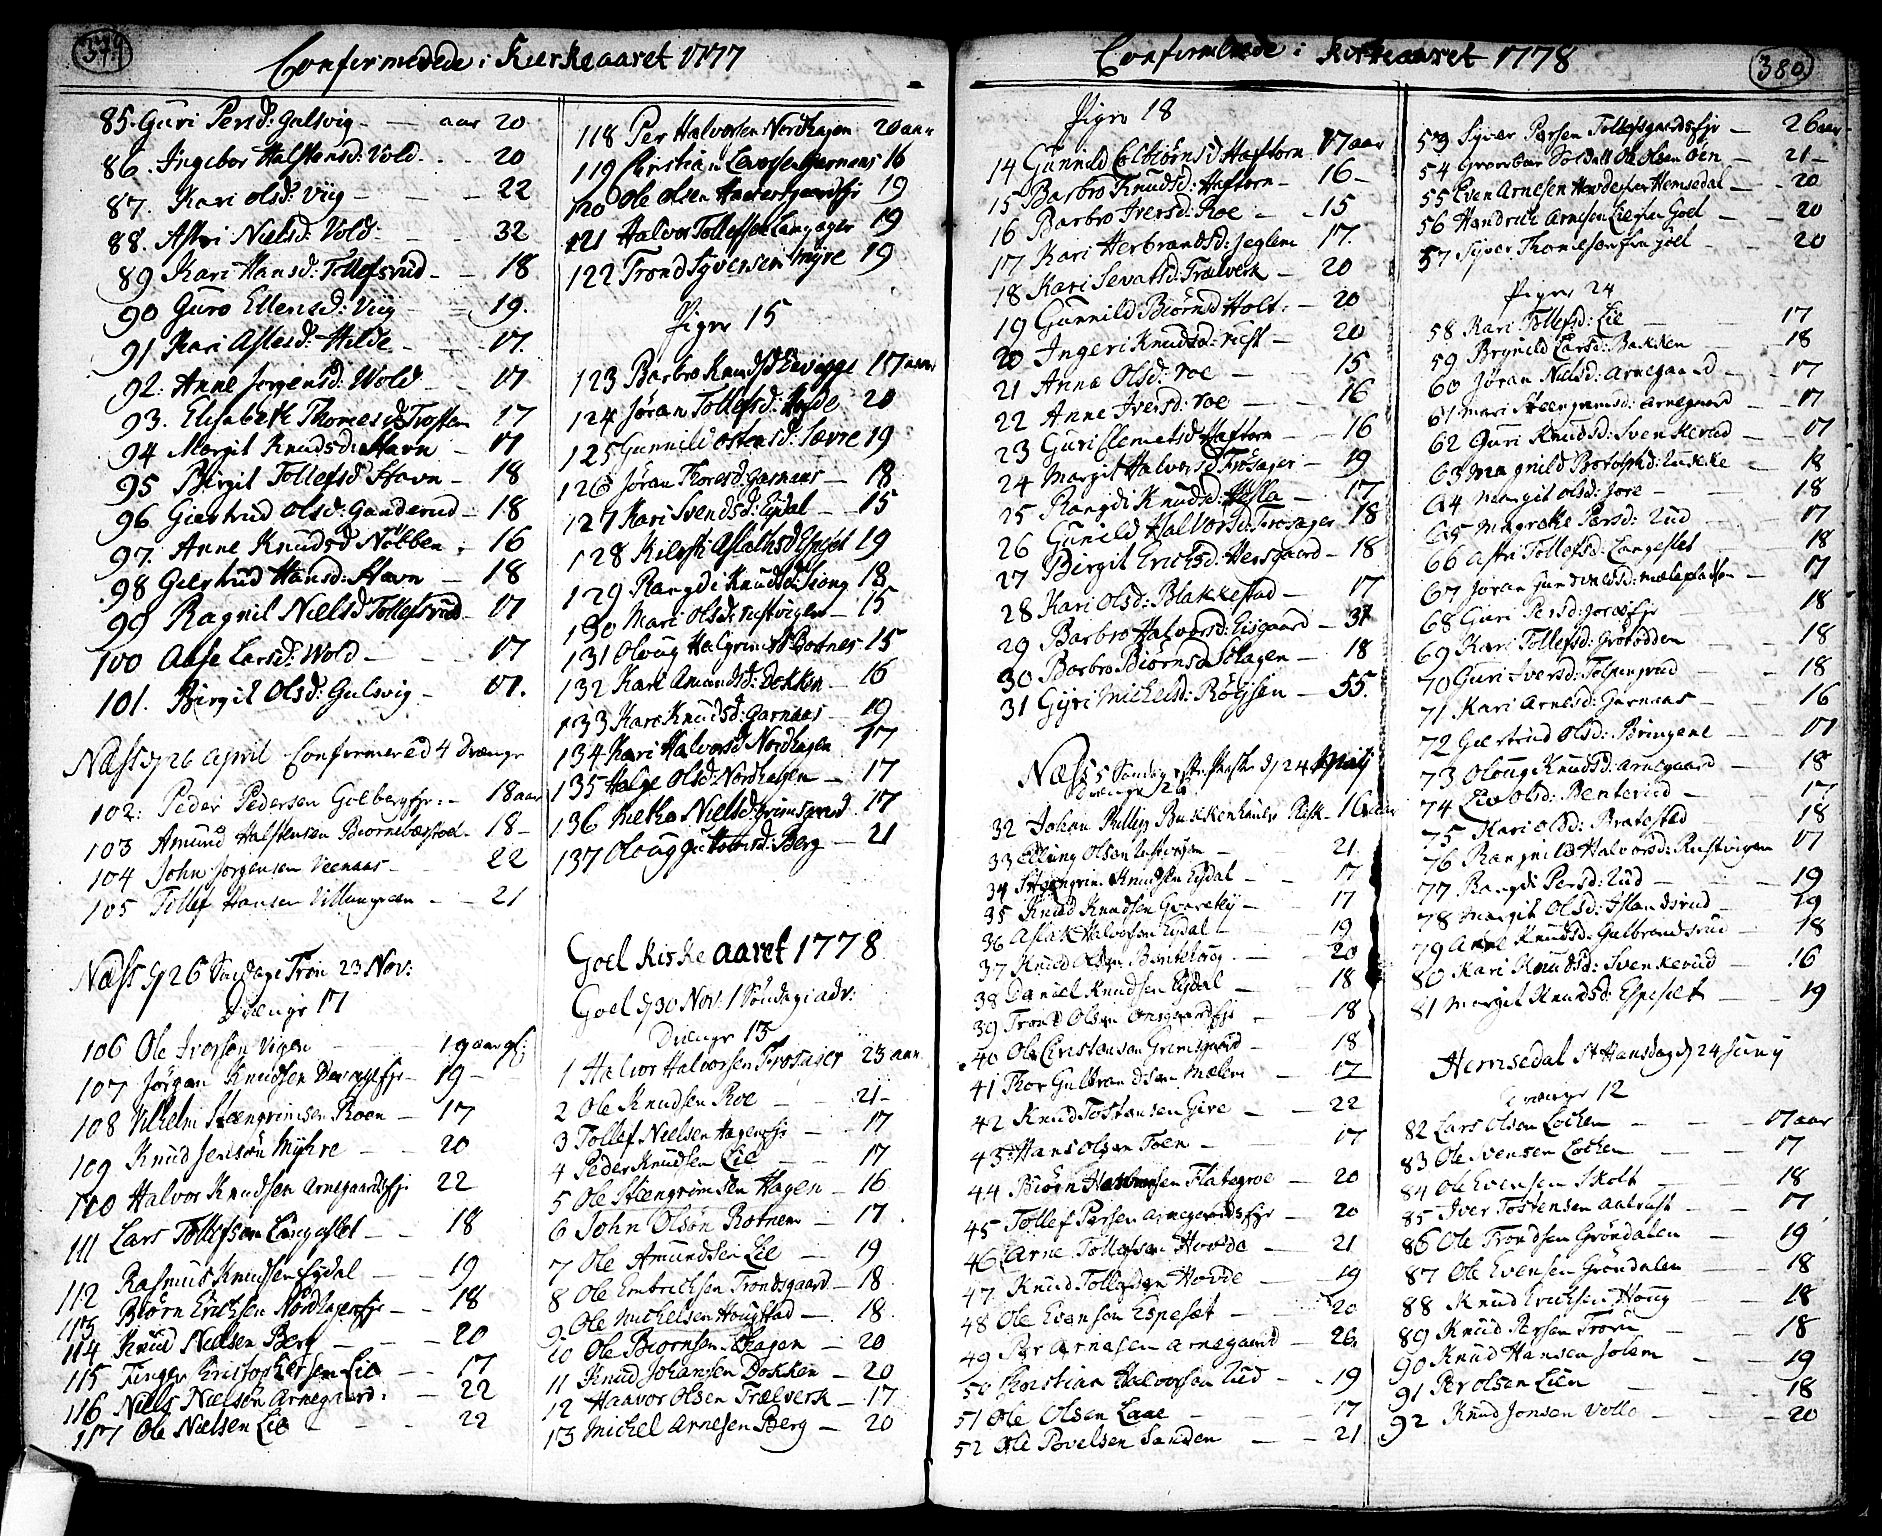 379
Confirmerede i Kierkeaaret 1777
85. Guri Persd: Gulsvig - aar 20
86. Ingebor Halstensd: Vold - 20
87. Kari Olsd: Viig - 22
88. Astri Nielsd: Vold - 32
89 Kari Hansd: Tollefsrud - 18
90 Guro Ellensd: Viig - 19.
91 Kari Aslesd: Hilde - 17.
92. Anne Jorgensd: Wold - 17
93. Elisabeth Thomesd: Trosten 17
94 Margit Knudsd: Havn - 17
95 Birgit Tollefsd Havn - 18
96 Giertrud Olsd: Ganderud - 18
97. Anne Knudsd Nölben - 16
98 Giertrud Hansd: Havn - 18
99 Ragnil Nielsd Tollefsrud - 17
100 Aase Larsd: Wold - 17
101. Birgit Olsd: Gulsvig - 17.
Næss d 26 April Confirmered 4 Drænge
102: Peder Pedersen Golbergejr: - 18 aar
103 Amund Halstensen Biornebæstoel - 18 -
104 John Jorgensen Veenaas - 22
105 Tollef Hansen Villangreen - 21
Næss d 26 Søndage Trin 23 Nov:
Drænge 17
106 Ole Iversen Vigen - 19 aar gl:
107 Jörgen Knudsen - 19 -
108 Vilhelm Steengrimsen Roen - 17
109 Knud Jensön Myhre - 20
110 Halvor Knudsen Arnegaardsejr 22
111 Lars Tollefsen Langeslet - 18
112 Rasmus Knudsen Eydal - 19
113 Biörn Erichsen Nordhagenejr - 18
114 Knud Nielsen Berg - 20
115 Christophersen Lie - 17
116 Niels Nielsön Arnegaard: - 22
117 Ole Nielsen Lie - 22
118 Per Halvorsen Nordhagen 20 aar
119 Christian Larssen Garnaas 16
120 Ole Olsen 19
121 Halvor Tollefsen Langager 19
122 Trond Syversen Myre 19
Piger 15
123 Barbro Knudsd 17 aar
124 Jöran Tollefsd: 20
125 Gunnild Ostensd: Sævre 19
126 Jöran Thoresd: Garnaas - 18
127 Kari Svendsd: Eydal - 15
128 Kilesti Aslachsd Espeset 19
129 Rangdi Knudsd: Liong 18
130 Mari Olsd: Rustvigen - 15
131 Oloug Halgrimsd Rotnes 15
132 Kari Amundsd: Dokken - 16
133 Kari Knudsd: Garnaas - 19
134 Kari Halvorsd Nordhagen 17
135 Helge Olsd: Nordhagen - 17
136 Birthe Nielsd: Grimsgard 17
137 Oloug Guttormsd: Berg - 21
Goel Kirke aaret 1778
Goel d 30 Nov: 1 Söndag i adv:
Drænge 13
1 Halvor Halvorsen Frosaker 23 aar
2 Ole Knudsen Roe - 21 -
3 Tollef Nielsen Hagenejr - 17
4 Peder Knudsen Lie - 17
5 Ole Steengrimsen Hagen - 16
6 John Olsön Rotnem - 17.
7 Ole Amundsen Lie - 19
8 Ole Embrichsen Trondsgaard - 18
9 Ole Michelsen Hougstad - 18.
10 Ole Biornsen Skagen - 20
11 Knud Johansen Dokken - 20
12 Haavor Olsen Trælverk - 17.
13 Michel Arnesen Berg - 20
Confirmerede i Kirkeaaret 1778
380
Piger 18
14 Gunnild Colbiörnsd Haftorn 17 aar
15 Barbro Knudsd: Haftorn - 16 -
16 Barbro Iversd: Roe - 15
17 Kari Herbrandsd: Jeglem 17.
18 Kari Sevatsd: Trælverk - 20
19 Gunnild Biörnsd Holt: - 20
20 Ingeri Knudsd: Rust - 20
21 Anne Olsd: Roe - 15
22 Anne Iversd: Roe - 16
23 Guri Clemetsd Haftorn - 16
24 Margit Halvorsd Frösager - 19
25 Rangdi Knudsd: Hesla - 17
26 Gunild Halvorsd: Frosager 18
27 Birgit Erichsd: Hersgaard - 18
28 Kari Olsd: Blakkestad - 17
29 Barbro Halvorsd: Eisgaard - 31
30 Barbro Biörnsd Skagen - 18
31 Gyri Michelsd: Röysen - 55.
Næss 5 Söndag efter Paaske d 24 Maij
Drænge 26
32 Johan Phillip 16 aar
33 Elling Olsen Rustvigen - 21
34 Steengrim Knudsen Eydal - 17
35 Knud Knudsen - 17
36 Aslak Halvorsen Eydal - 19
37 Knud Olsen Bentehoug - 20
38 Daniel Knudsen Eydal - 18
39 Trond Olsen - 18
40 Ole Christensen Grimsgaard - 18
41 Thor Gulbrandsen Mælen - 17
42 Knud Tostensen Gire - 22
43 Hans Olsen Toen - 17
44 Biörn Flategroe - 20
45 Tollef Persen Arnegardsejr - 20
46 Arne Tollefsen Hovde - 21
47 Knud Tollefsen Hovde - 19
48 Ole Evensen Espeset - 20
49 Per Arnesen Arnegaard - 26
50 Christian Halvorsen Rud - 19
51 Ole Olsen Laae - 17
52 Ole Povelsen Sanden - 21
53 Syver Persen Tollefsgaardsejr - 26 aar
54 Soldatt Ole Olsen Öen - 21 -
55 Even Arnesen Hemsedal - 20
56 Handrich Arnesen Lie fra Goel - 20
57 Syver Thomesen fra Goel - 20
Piger 24
58 Kari Tollefsd: Lie - 17
59 Brynild Larsd: Bakken - 18
60 Jöran Nielsd: Arnegaard - 17
61 Mari Steengrimsd: Arnegaard - 17
62 Guri Knudsd: Svenkerud - 17
63 Magnild Botolfsd: Lukke - 18
64 Margit Olsd: Jore - 18
65 Margrethe Persd: Rud - 17
66 Astri Tollefsd: Langeslet - 18
67 Jöran - 17
68 Guri Persd: - 18
69 Kari Tollefsd: Grötodden - 18
70 Guri Iversd: Tolpingrud - 18
71 Kari Arnesd: Garnaas - 16
72 Giertrud Olsd: Bringene - 17
73 Oloug Knudsd: Arnegaard - 18
74 Liv Olsd: Benterud - 17
75 Kari Olsd: Bratestad - 18
76 Rangnild Halvorsd: Rustvigen 17
77 Rangdi Persd: Rud - 19
78 Margit Olsd: Islandsrud - 19
79 Anne Knudsd: Gulbrandsrud - 18
80 Kari Knudsd: Svenkerud - 16
81 Margit Knudsd: Espeset - 19
Hemsedal St Hansdag d 24 Juny
Drænge 12
82 Lars Olsen Löchen - 17 aar
83 Ole Svensen Löchen - 17
84 Ole Evensen Skolt - 18
85 Iver Tostensen Aalrust - 17
86 Ole Trondsen Gröndalen - 19
87 Ole Evensen Gröndalen - 18
88 Knud Erichsen Houg - 18
89 Knud Persen Trøim - 18
90 Knud Hansen Solem - 19
91 Per Olsen Lien - 18
92 Knud Jonsen Volle - 20